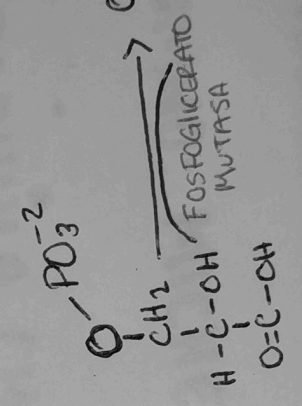 O-PO3^-2
CH2
H-C-OH
O=C-OH
FOSFOGLICERATO
MUTASA